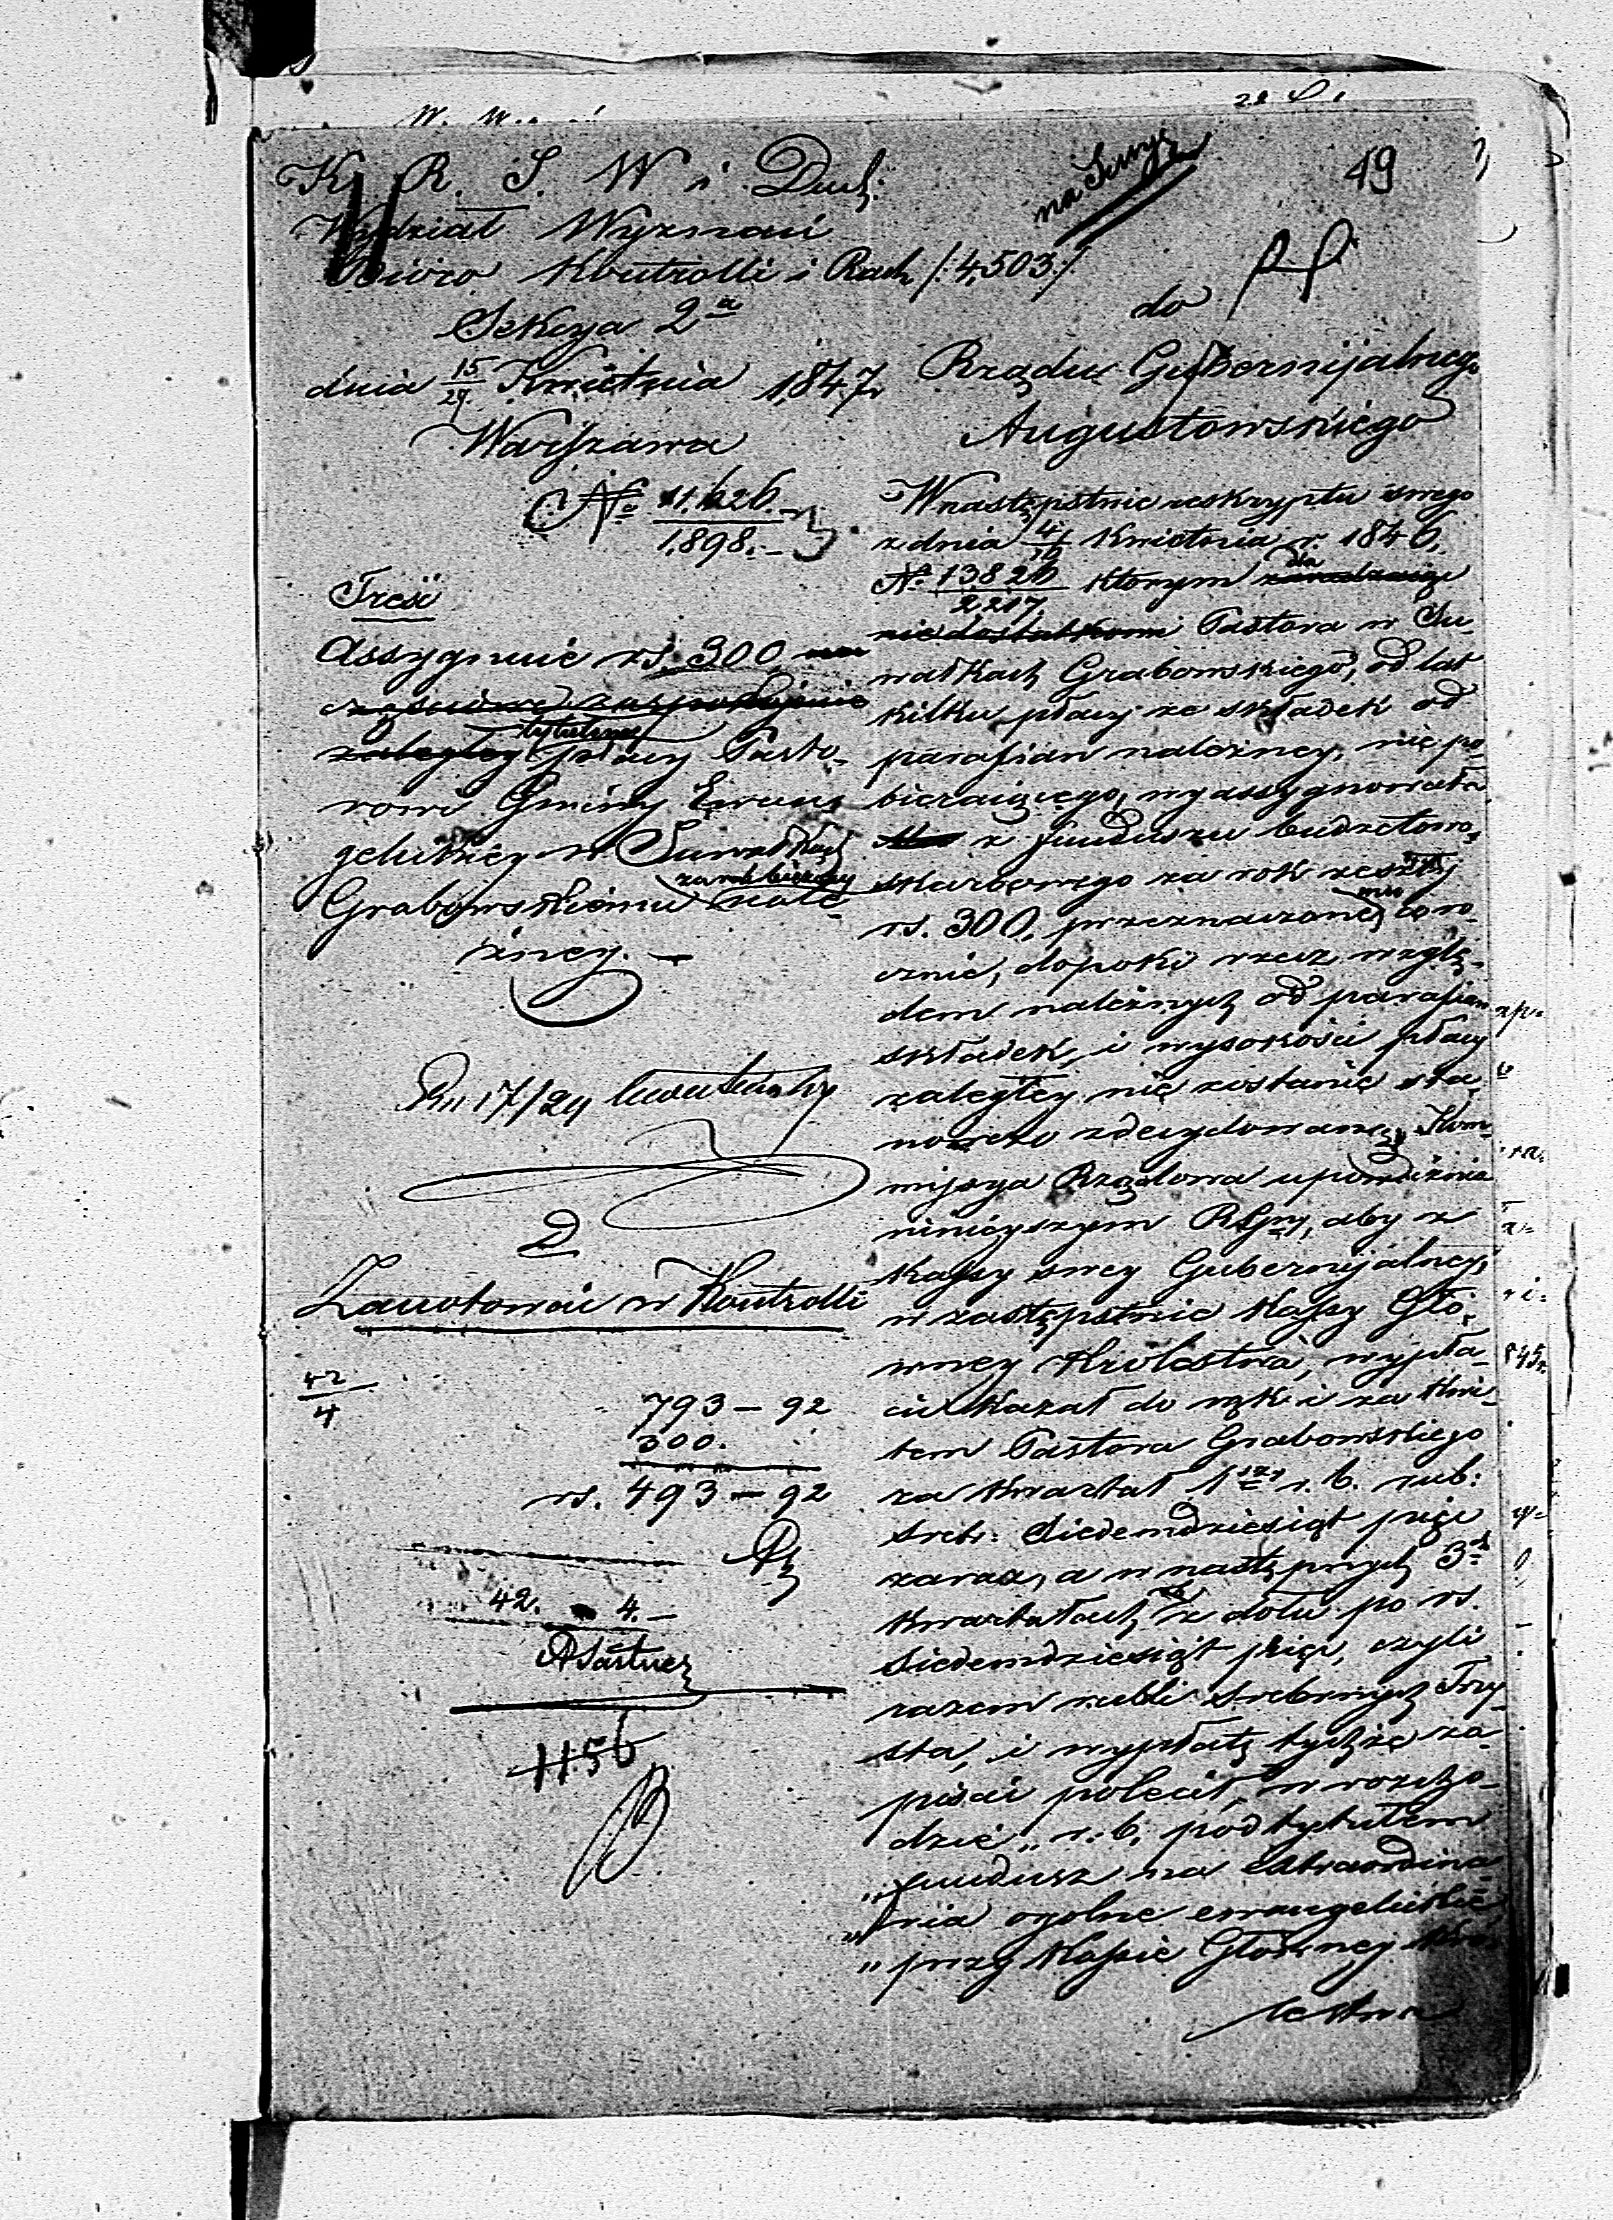 K. R. S. W i Duch:
Wydział Wyznań
Biuro Kontrolli i Rach /:4,503:/
Sekcya 2a
dnia 15/27 Kwietnia 1847r
Warszawa
No 11,626/1,898.
Treść
Assygnuie rs. 300
tytułem
płacy Pasto-
rowi Gminy Ewan-
gelickiey w Suwałkach
za rok bieżący
Grabowskiemu nale-
żney. —
17/29
D
Zanotować w Kontrolli
42/4
793 – 92
300.
rs. 493 – 92
42. 4. –
1156
49
do
Rządu Gubernijalnego
Augustowskiego
W następstwie reskryptu swego
z dnia 4/16 Kwietnia r. 1846,
No 13826/2217, którym dla
niedostatkowi Pastora w Su-
wałkach Grabowskiego, od lat
kilku płacy ze składek od
parafian należney, nie po-
bieraiącego, wyassygnowała
z funduszu budżetowo-
skarbowego za rok zeszły
rs. 300, przeznaczone coro-
cznie, dopóki rzecz wzglę-
dem należnych od parafian
składek, i wysokości płacy
zaległey nie zostanie sta-
nowczo zdecydowaną, Kom-
missya Rządowa upoważnia
ninieyszym RGny, aby z
Kassy swey Gubernijalney,
w zastępstwie Kassy Głó-
wney Królestwa, wypła-
cić kazał do rąk i za kwi-
tem Pastora Grabowskiego
za kwartał 1szy r. b. rub:
srebr: siedemdziesiąt pięć
zaraz, a w następnych 3ch
kwartałach z dołu po rs.
siedemdziesiąt pięć, czyli
razem rubli srebrnych Trzy-
sta, i wypłatę tychże za-
pisać polecił w rozcho-
dzie „ r. b. pod tytułem
„fundusz na extraordina-
„ria ogólne ewangelickie
„przy Kassie Główney Kró-
lestwa